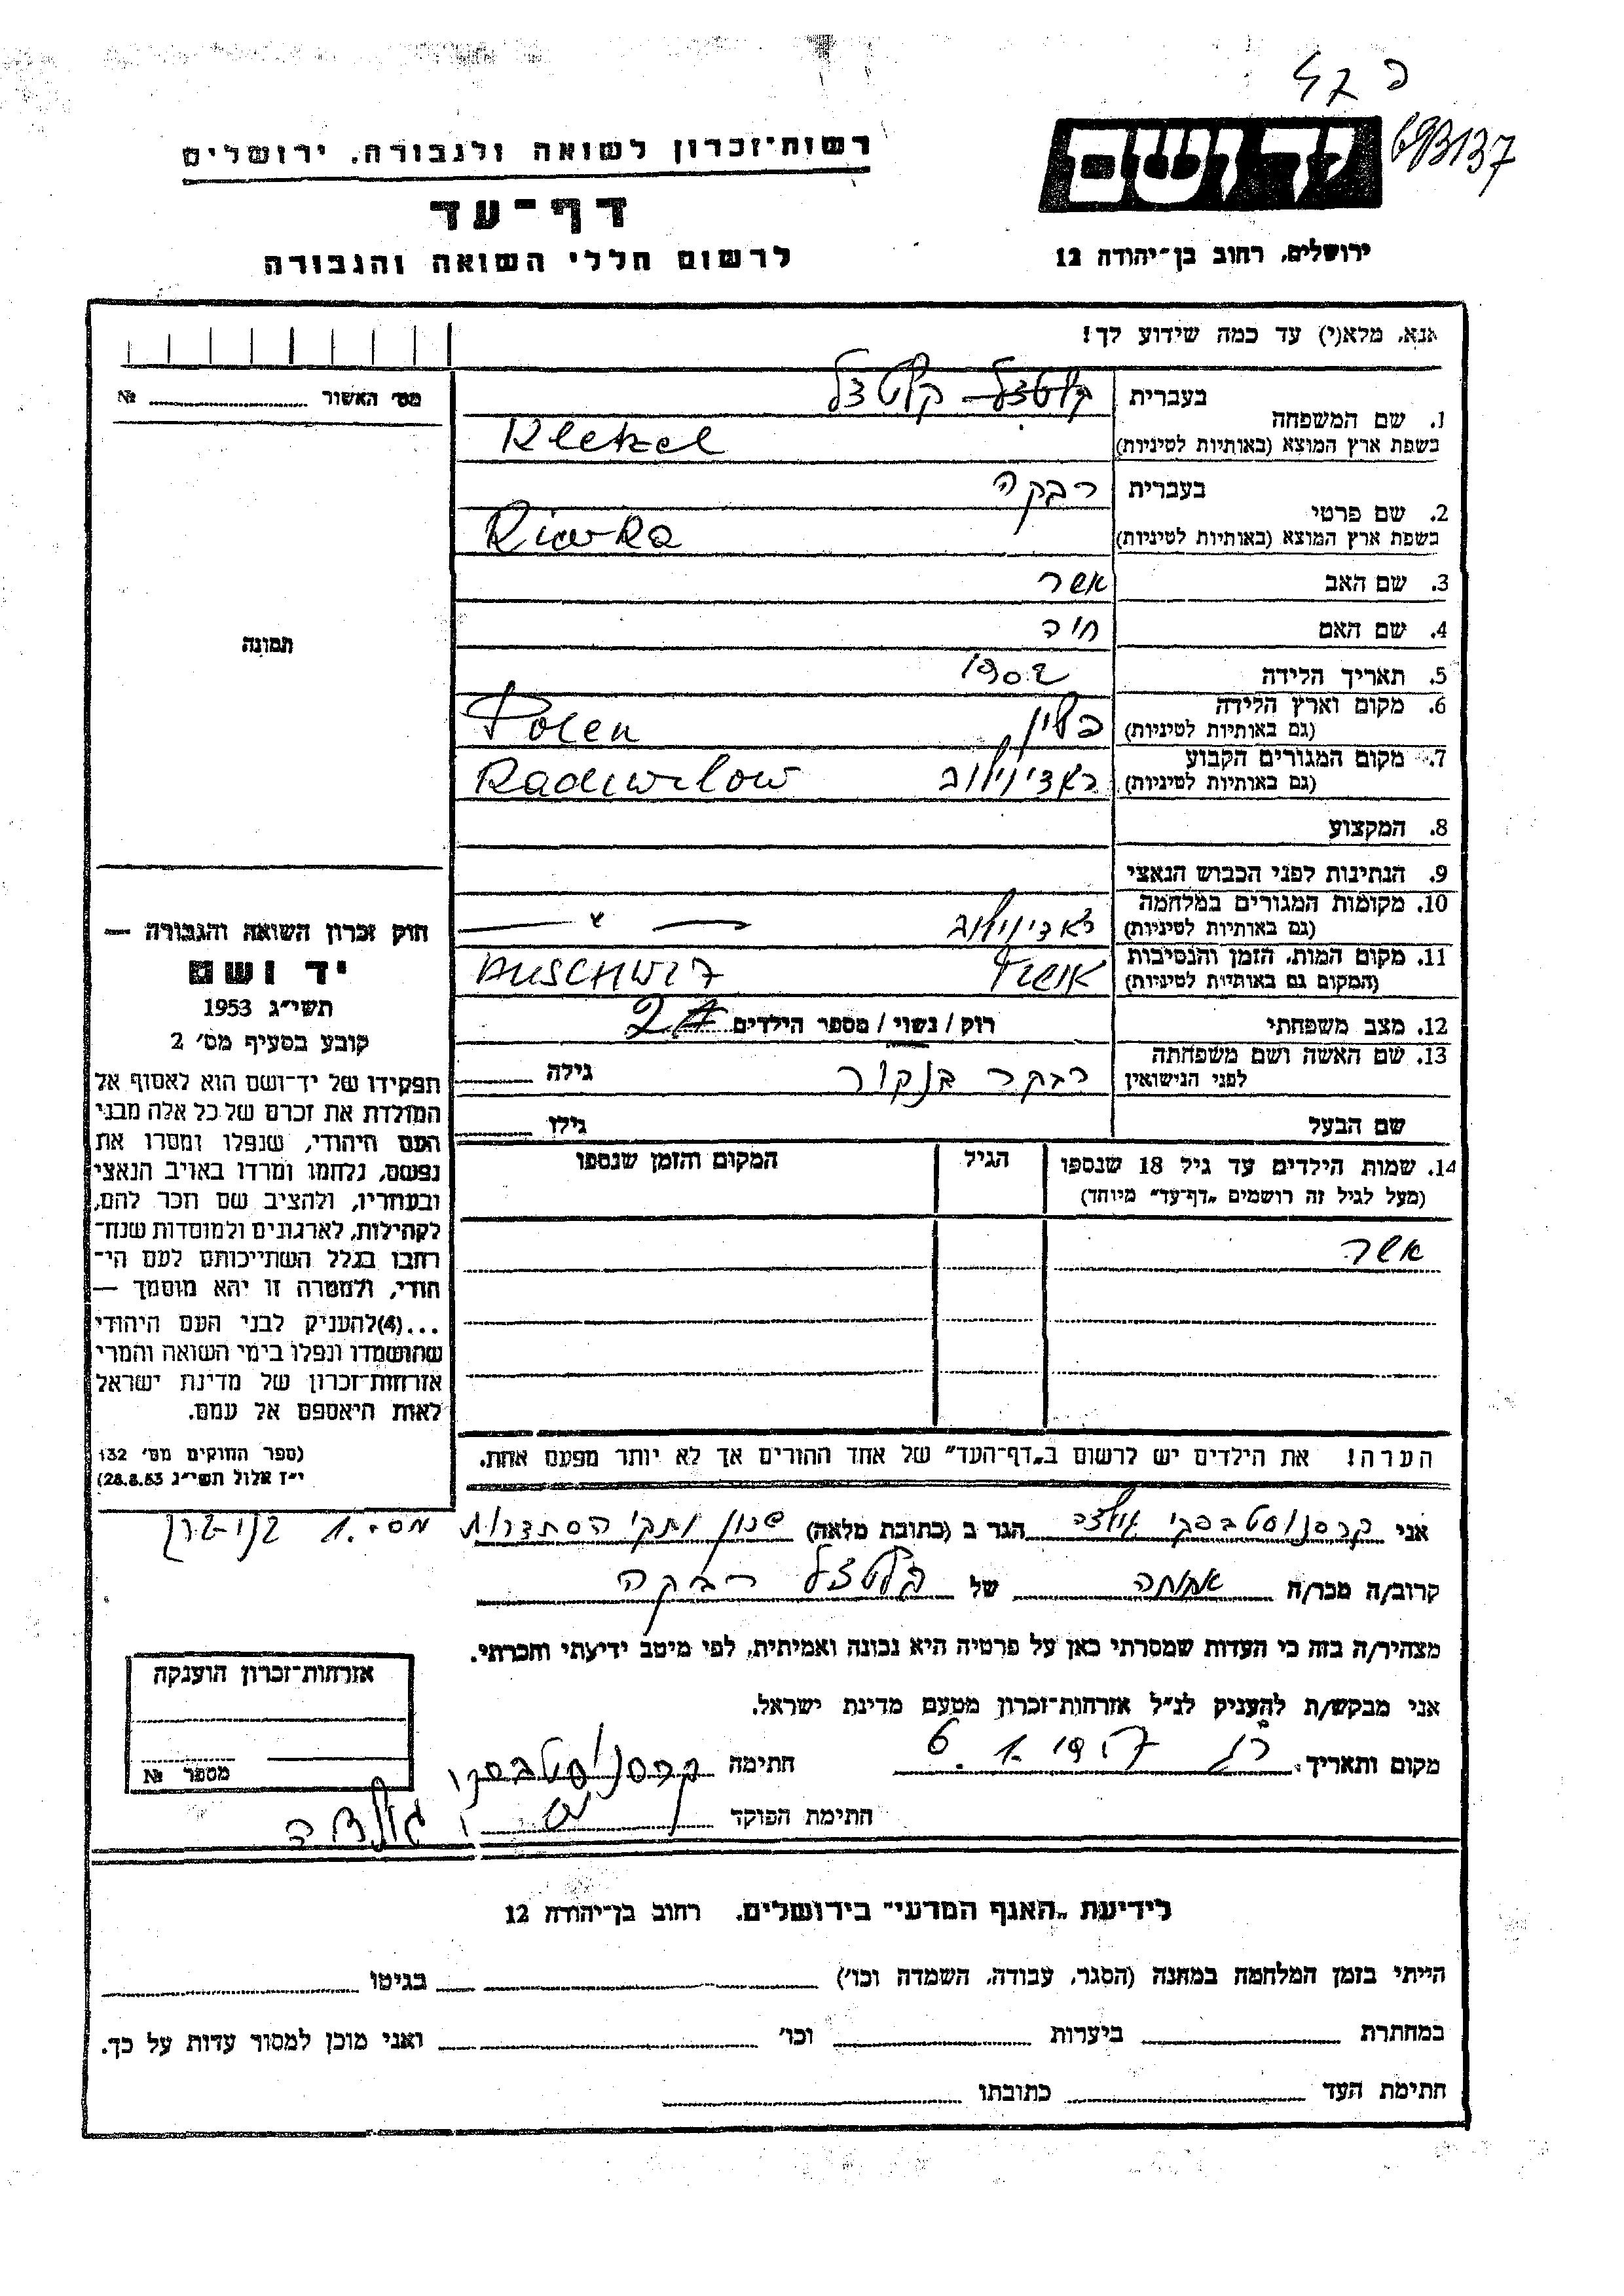 693137
יד ושם
רשות־זכרון לשואה ולגבורה, ירושלים
דף־עד
לרשום חללי השואה והגבורה
ירושלים, רחוב בן־יהודה 12
אנא, מלא(י) עד כמה שידוע לך!
מס׳ האשור №
1. שם המשפחה
בעברית
בשפת ארץ המוצא (באותיות לטיניות) Kletzel
2. שם פרטי
בעברית רבקה
בשפת ארץ המוצא (באותיות לטיניות) Riwka
3. שם האב אשר
4. שם האם חיה
תמונה
5. תאריך הלידה 1902
6. מקום וארץ הלידה פולין Polen
(גם באותיות לטיניות)
7. מקום המגורים הקבוע ראדזיווילוב Radziwilow
(גם באותיות לטיניות)
8. המקצוע
9. הנתינות לפני הכבוש הנאצי
10. מקומות המגורים במלחמה ראדזיווילוב — " —
(גם באותיות לטיניות)
11. מקום המות, הזמן והנסיבות AUSCHWIZ
(המקום גם באותיות לטיניות)
12. מצב משפחתי רוק / נשוי / מספר הילדים 2
13. שם האשה ושם משפחתה
לפני הנישואין
רבקה גילה
שם הבעל גילו
14. שמות הילדים עד גיל 18 שנספו
(מעל לגיל זה רושמים „דף־עד״ מיוחד)
הגיל
המקום והזמן שנספו
אשר
הערה! את הילדים יש לרשום ב„דף־העד״ של אחד ההורים אך לא יותר מפעם אחת.
חוק זכרון השואה והגבורה —
יד ושם
תשי״ג 1953
קובע בסעיף מס׳ 2
תפקידו של יד־ושם הוא לאסוף אל
המולדת את זכרם של כל אלה מבני
העם היהודי, שנפלו ומסרו את
נפשם, נלחמו ומרדו באויב הנאצי
ובעוזריו, ולהציב שם וזכר להם,
לקהילות, לארגונים ולמוסדות שנח־
רבו בגלל השתייכותם לעם הי־
הודי, ולמטרה זו יהא מוסמך —
...(4)להעניק לבני העם היהודי
שהושמדו ונפלו בימי השואה והמרי
אזרחות־זכרון של מדינת ישראל
לאות היאספם אל עמם.
(ספר החוקים מס׳ 132
י״ז אלול תשי״ג 28.8.53)
אני הגר ב (כתובת מלאה) שכון ותקי הסתדרות מס. 1
קרוב/ה מכר/ה אחותה של קלטצל רבקה
מצהיר/ה בזה כי העדות שמסרתי כאן על פרטיה היא נכונה ואמיתית, לפי מיטב ידיעתי והכרתי.
אני מבקש/ת להעניק לנ״ל אזרחות־זכרון מטעם מדינת ישראל.
מקום ותאריך: 6.1.1957 חתימה
חתימת הפוקד
אזרחות־זכרון הוענקה
מספר №
לידיעת „האגף המדעי״ בירושלים, רחוב בן־יהודה 12
הייתי בזמן המלחמה במחנה (הסגר, עבודה, השמדה וכו׳) בגיטו
במחתרת ביערות וכו׳ ואני מוכן למסור עדות על כך.
חתימת העד כתובתו